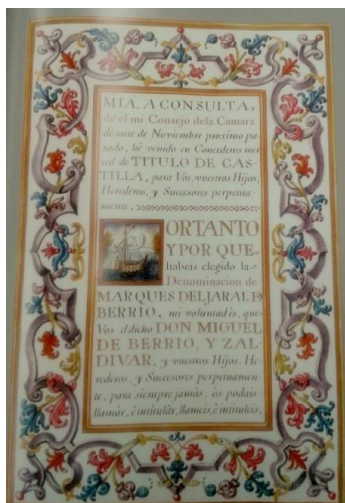 MIA, A CONSULTA,
de el mi Consejo dela Camara
de siete de Noviembre proximo pa-
sado, hè venido en Concederos mer-
ced de TITULO DE CAS-
TILLA, para Vos, vuestros Hijos,
Herederos, y Succesores perpetua-
mente.
ORTANTO
Y POR QUE
habeis elegido la
Denominacion de
MARQUES DEL JARAL DE
BERRIO, mi voluntad es, que
Vos el dicho DON MIGUEL
DE BERRIO, Y ZAL-
DIVAR, y vuestros Hijos, He-
rederos, y Succesores perpetuamen-
te, para siempre jamàs, os podais
llamàr, è intitulàr, llameis, è intituleis,